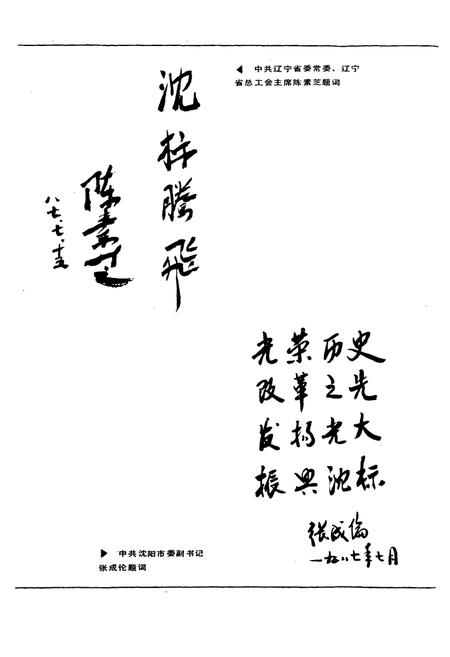 ◀ 中共辽宁省委常委、辽宁
省总工会主席陈素芝题词
沈标腾飞
陈素芝
八七、七、十五
光荣历史
改革之先
发扬光大
振兴沈标
张成伦
一九八七年七月
▶ 中共沈阳市委副书记
张成伦题词